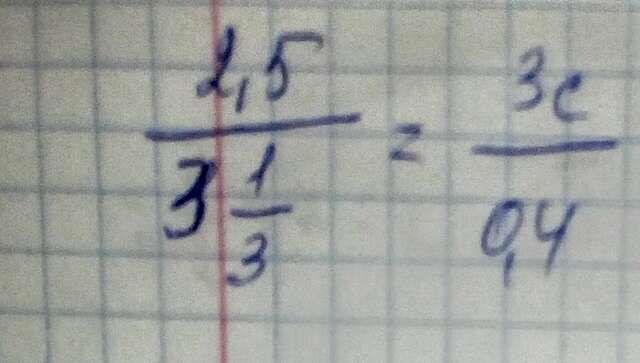 2,5 / 3 1/3 = 3c / 0,4